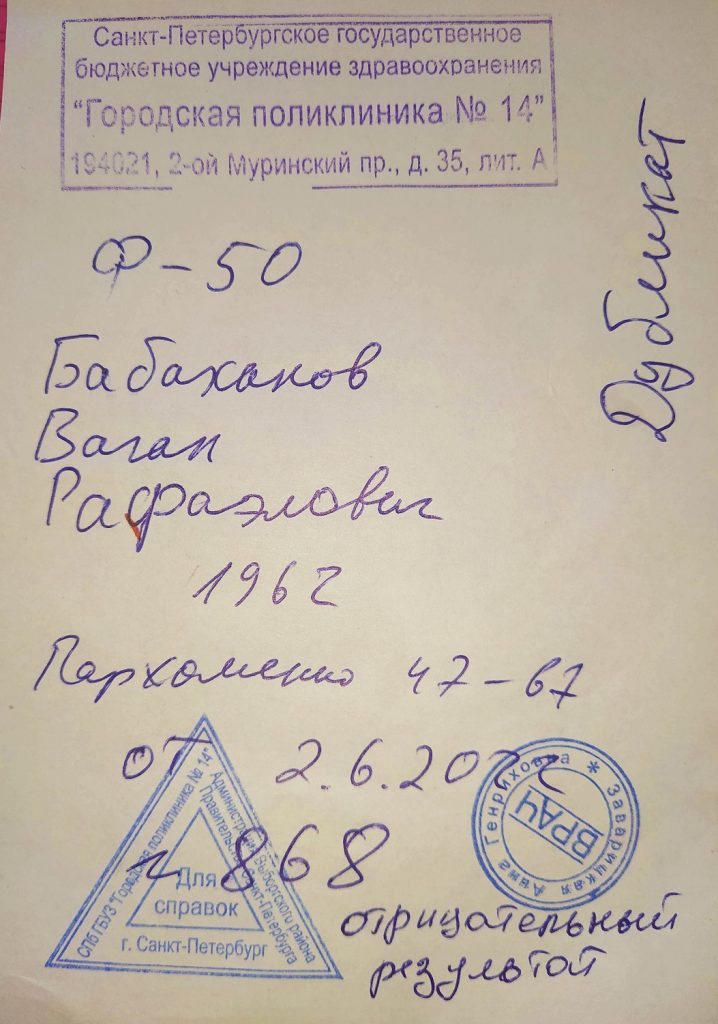 Санкт-Петербургское государственное
бюджетное учреждение здравоохранения
"Городская поликлиника № 14"
194021, 2-ой Муринский пр., д. 35, лит. А
Дубликат
Ф-50
Бабаханов
Ваган
Рафаэлович
1962
Пархоменко 47-67
от 2.6.2022
868
отрицательный
результат
СПб ГБУЗ "Городская поликлиника № 14"
Администрация Выборгского района
Правительство Санкт-Петербурга
Для
справок
г. Санкт-Петербург
Заварицкая Анна Генриховна *
ВРАЧ